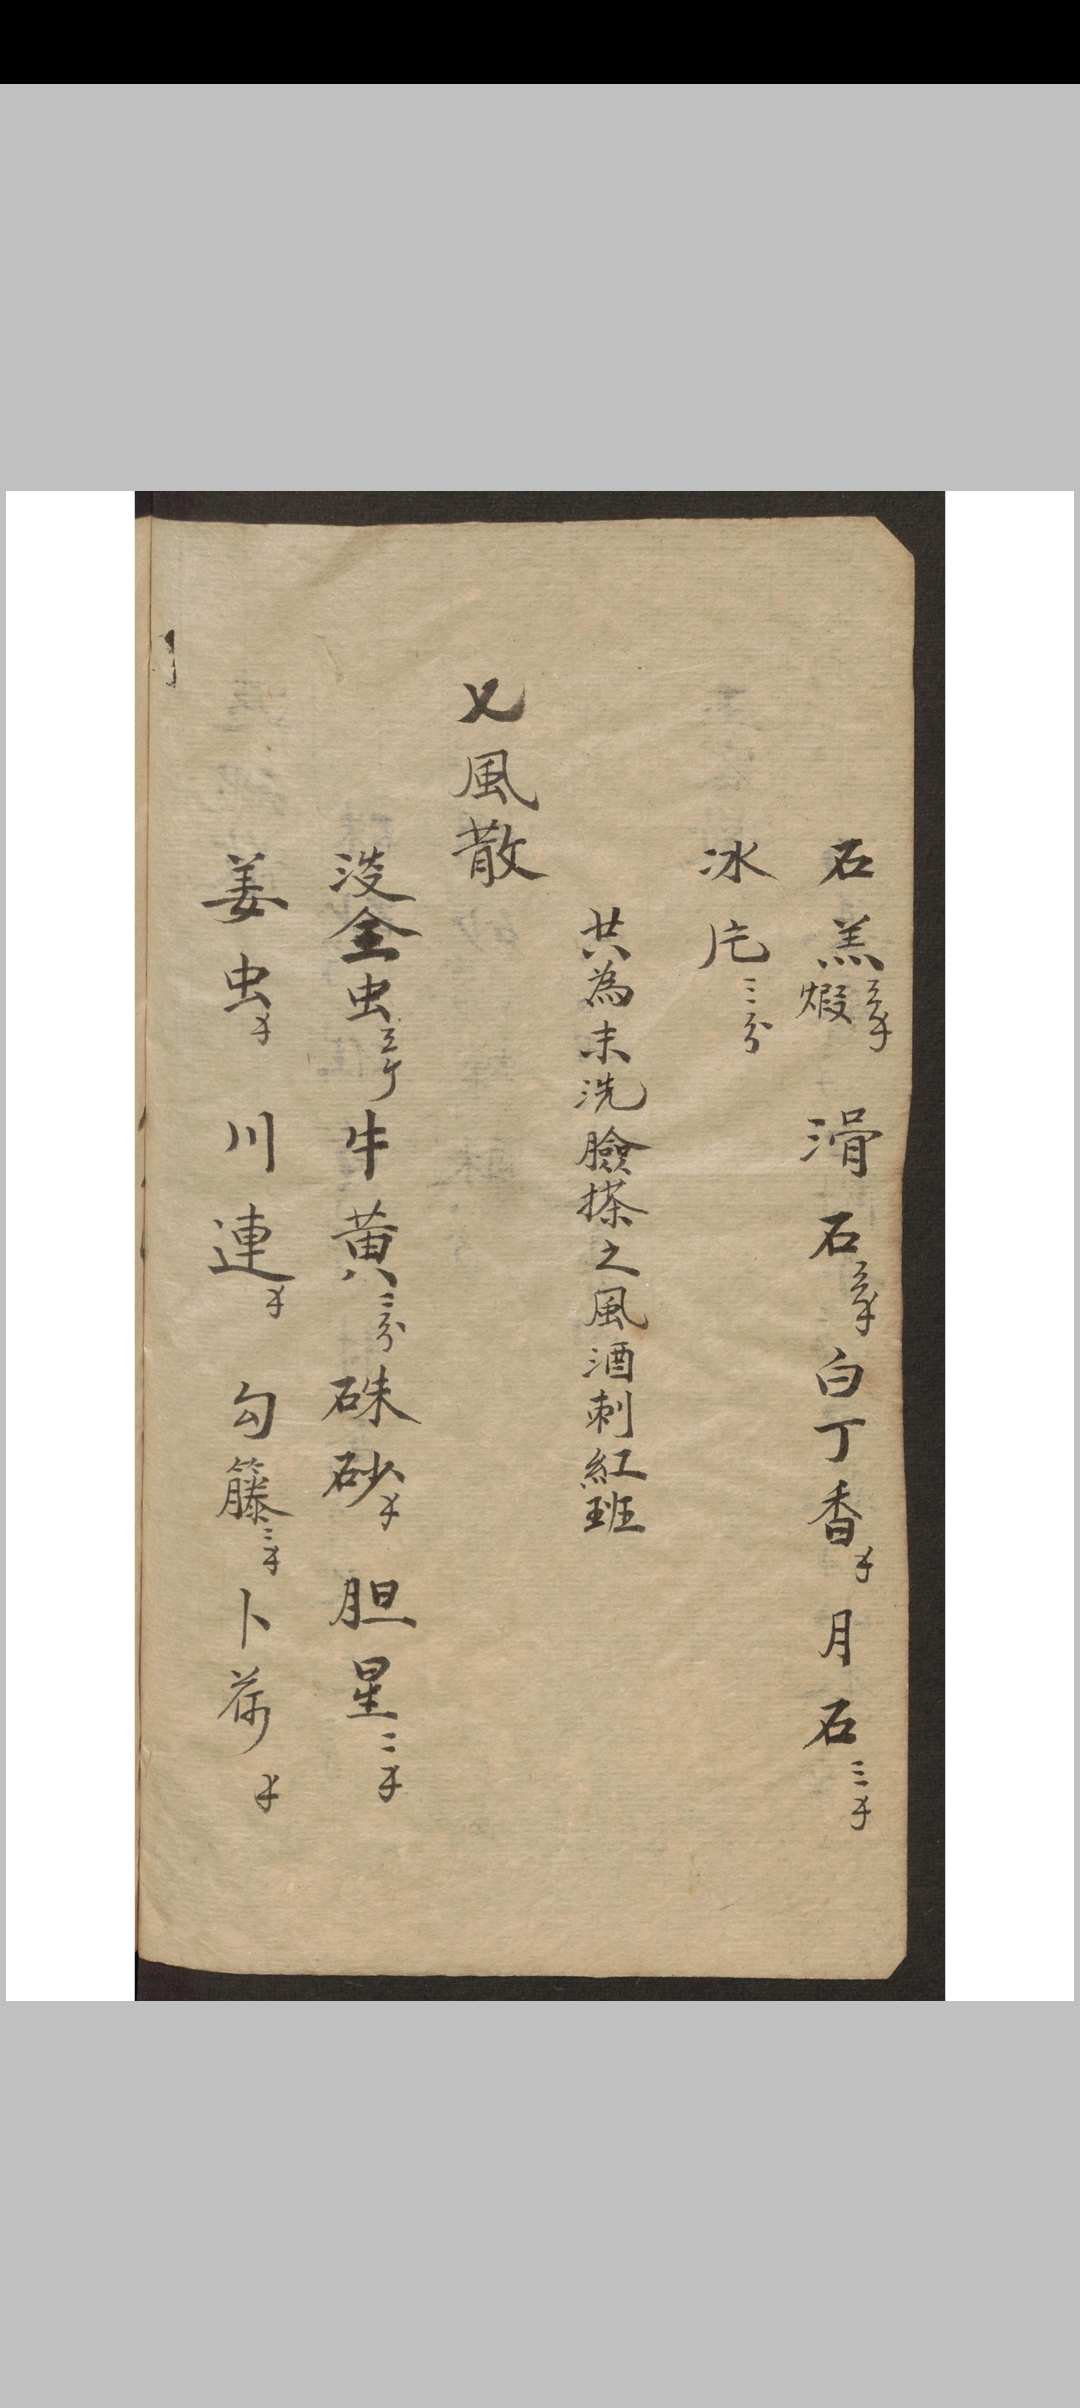 石羔煅三钱 滑石三钱 白丁香钱 月石三钱
冰片三分
共為末洗臉搽之風酒刺紅班
乂風散
淡全虫三个 牛黄三分 硃砂钱 胆星二钱
姜虫钱 川連钱 勾籐二钱 卜荷钱